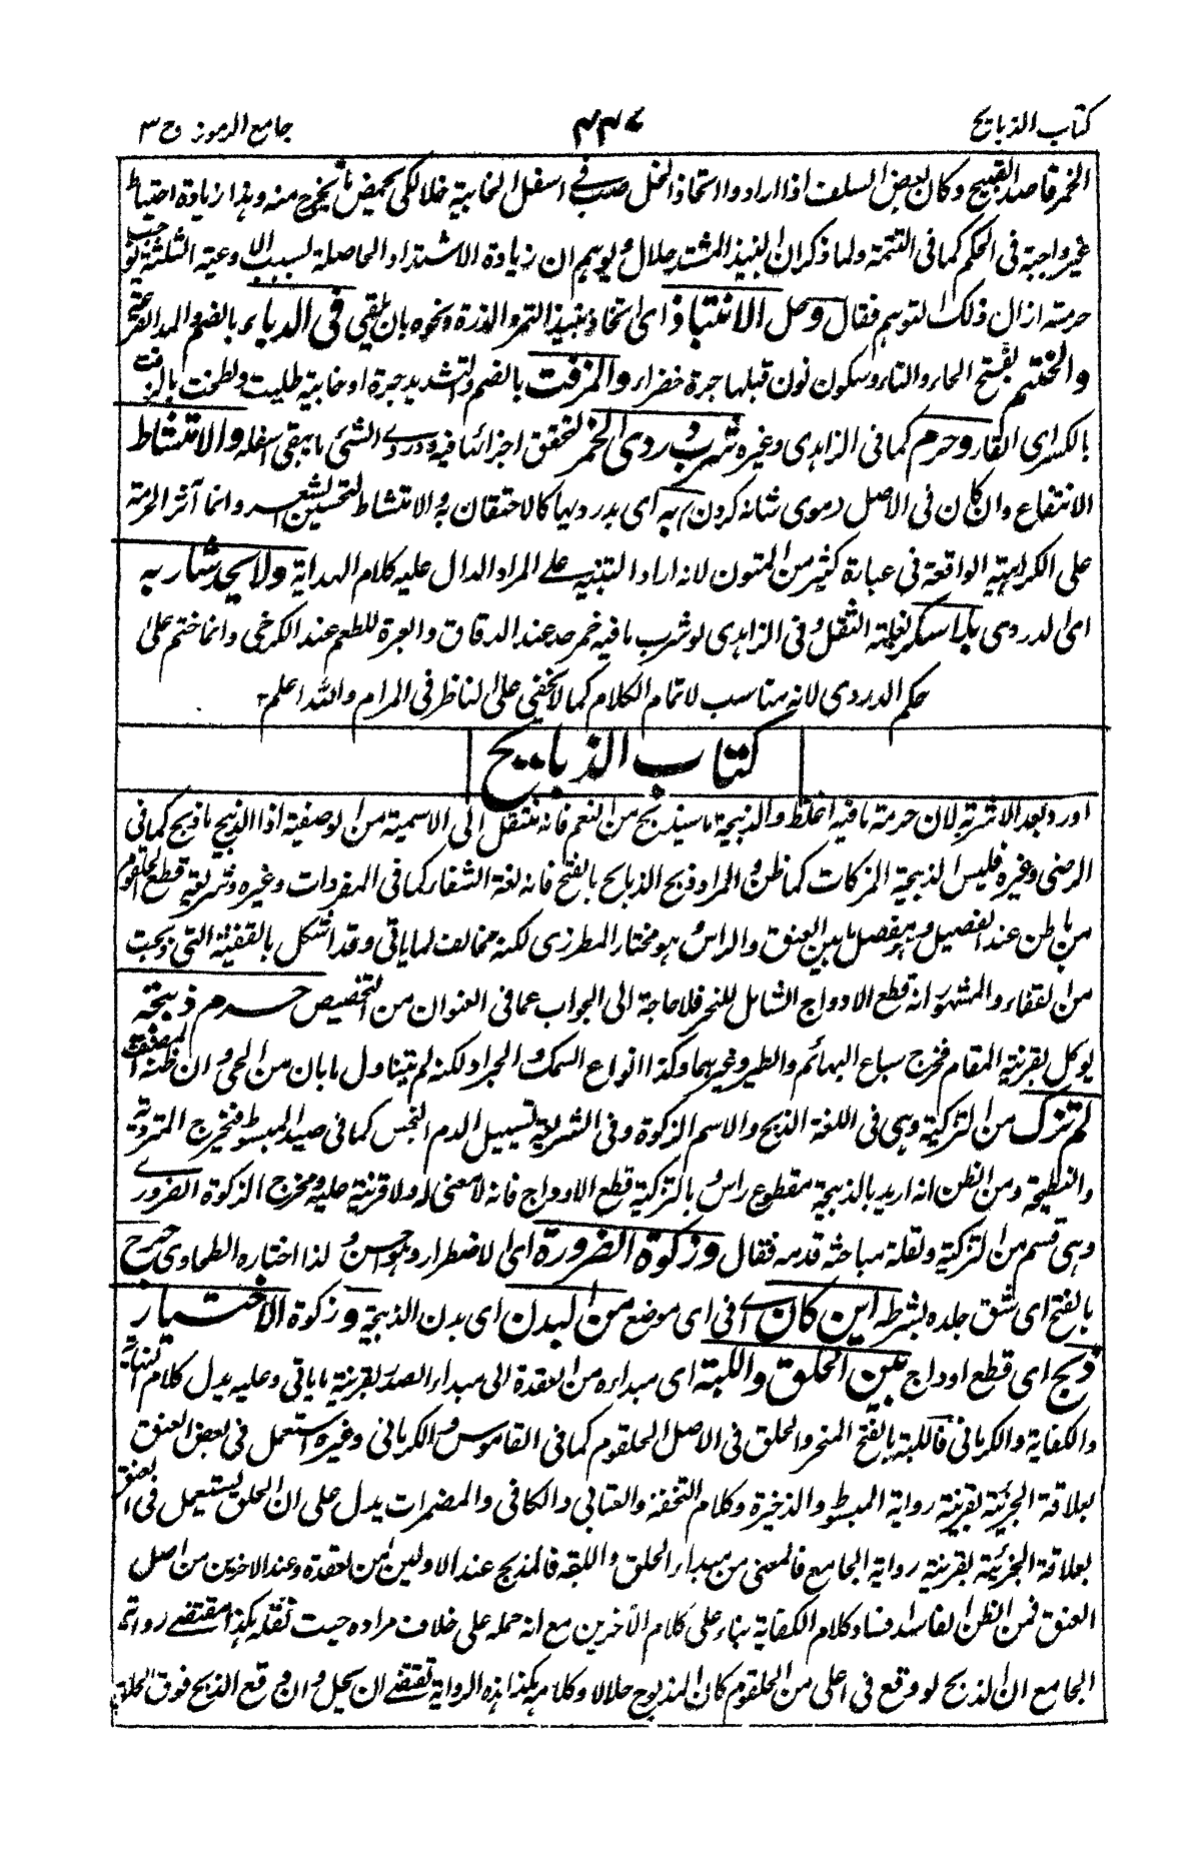 كتاب الذبايح
جامع الرموز ج ٣
الخمر قاصد القبيح وكان بعض السلف اذا ارادوا اتخاذ الخل صب في اسفل الخابية خلا لكى يحمض ما يخرج منه وهذا زيادة احتياط
غير واجبة فى الحكم كما فى التتمة ولما ذكر ان النبيذ المشتد حلال ويوهم ان زيادة الاشتداد الحاصلة بسبب الاوعية الثلثة توجب
حرمته ازال ذلك التوهم فقال وحل الانتباذ اى اتخاذ نبيذ التمر والذرة ونحوه بان يلقى فى الدباء بالضم والمد القرع
والحنتم بفتح الحاء والتاء وسكون نون قبلها جرة خضراء والمزفت بالضم والتشديد جرة او خابية طليت ولطخت بالزفت
بالكسر اى القار وحرم كما فى الزاهدى وغيره شرب دردى الخمر لتحقق اجزائها فيه ودردى الشئ ما يبقى اسفله والامتشاط
الانتفاع وان كان فى الاصل موى شانه كردن به اى بدرديها كالاحتقان به والامتشاط لتحسين الشعر وانما آثر الحرمة
على الكراهية الواقعة فى عبارة كثير من المتون لانه اراد التنبيه على المراد الدال عليه كلام الهداية ولا يحد شاربه
اى الدردى بلا سكر لغلبة الثفل وفى الزاهدى لو شرب ما فيه خمر حد عند الدقاق والعبرة للطعم عند الكرخى وانما ختم على
حكم الدردى لانه مناسب لاتمام الكلام كما لا يخفى على الناظر فى المرام والله اعلم
كتاب الذبايح
اورد بعد الاشربة لان حرمة ما فيه اغلظ والذبيحة ما سيذبح من النعم فانه منتقل الى الاسمية من الوصفية اذا الذبيح ما ذبح كما فى
الرضى وغيره فليس الذبيحة المزكات كما ظن والمراد ذبح الذبايح بالفتح فانه لغة الشق كما فى المفردات وغيره وشريعة قطع الحلقوم
من باطن عند الفصيل وهو مفصل ما بين العنق والراس وهو مختار المطرزى لكنه مخالف لما ياتى وقد اشكل بالقفيئة التى ذبحت
من القفاء والمشهور انه قطع الاوداج الشامل للنحر فلا حاجة الى الجواب عما فى العنوان من التخصيص حرم ذبيحة
يوكل بقرينة المقام فخرج سباع البهائم والطير وغيرهما وكذا انواع السمك والجراد لكنه لم يتناول ما بان من الحى وان ظنه المصنف
لم تزك من التزكية وهى فى اللغة الذبح والاسم الزكوة وفى الشريعة تسييل الدم النجس كما فى صيد المبسوط فتخرج المتردية
والنطيحة ومن الظن انه اريد بالذبيحة مقطوع راس وبالتزكية قطع الاوداج فانه لا معنى له ولا قرينة عليه ومخرج الزكوة الضرورى
وهى قسم من التزكية ولقلة مباحثه قدمه فقال وزكوة الضرورة اى الاضطرار وهو احسن ولذا اختاره الطحاوى جرح
بالفتح اى شق جلده بشرطه اين كان اى فى اى موضع من البدن اى بدن الذبيحة وزكوة الاختيار
ذبح اى قطع اوداج بين الحلق واللبة اى مبداه من العقدة الى مبداء الصدر بقرينة ما ياتى وعليه يدل كلام النهاية
والكفاية والكرمانى فاللبة بالفتح المنحر والحلق فى الاصل الحلقوم كما فى القاموس والكرمانى وغيره استعمل فى بعض العنق
بعلاقة الجزئية بقرينة رواية المبسوط والذخيرة وكلام التحفة والعتابى والكافى والمضمرات يدل على ان الحلق يستعمل فى العنق
بعلاقة الجزئية بقرينة رواية الجامع فالمعنى من مبداء الحلق واللبة فالمذبح عند الاولين من العقدة وعند الاخرين من اصل
العنق فمن الظن الفاسد فساد كلام الكفاية بناء على كلام الآخرين مع انه حمله على خلاف مراده حيث نقله هكذا مقتضى رواية
الجامع ان الذبح لو وقع فى اعلى من الحلقوم كان المذبوح حلالا وكلامه هكذا هذه الرواية تقتضى ان يحل وان وقع الذبح فوق الحلق